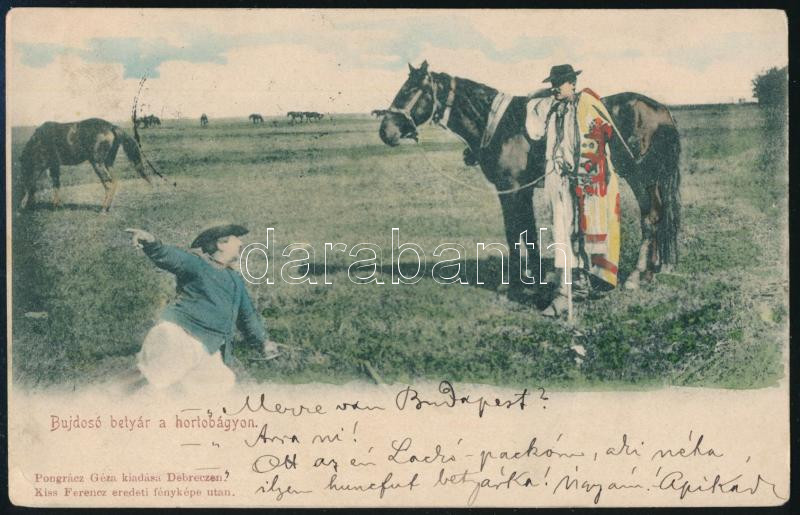 darabanth.com
Bujdosó betyár a hortobágyon.
-„- Merre van Budapest?
-„- Arra ni!
-„- Ott az én Laczkó-packóm, aki néha,
ilyen huncfut betyárka! Ugyám! Apikád
Pongrácz Géza kiadása Debreczen.
Kiss Ferencz eredeti fényképe utan.